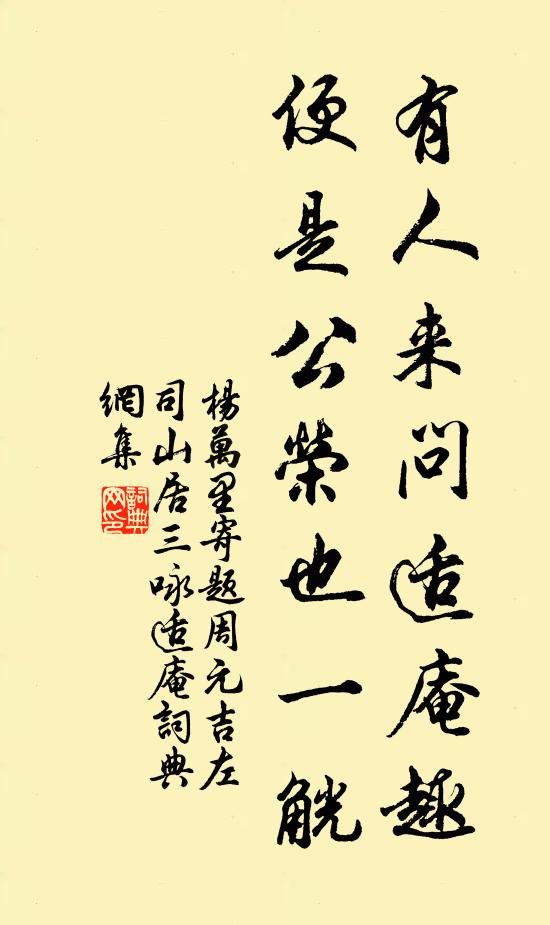 有人来问适庵趣
便是公榮也一觥
楊萬里寄题周元吉左
司山居三咏适庵詞典
網集
詞典
网印